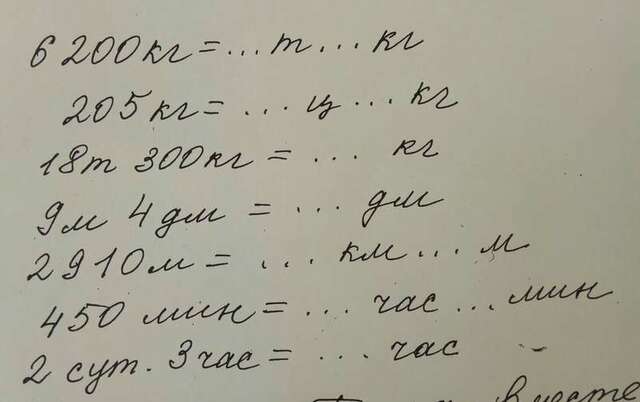 6 200кг = ... т ... кг
205 кг = ... ц ... кг
18т 300кг = ... кг
9м 4 дм = ... дм
2 910м = ... км ... м
450 мин = ... час ... мин
2 сут. 3 час = ... час
вместе